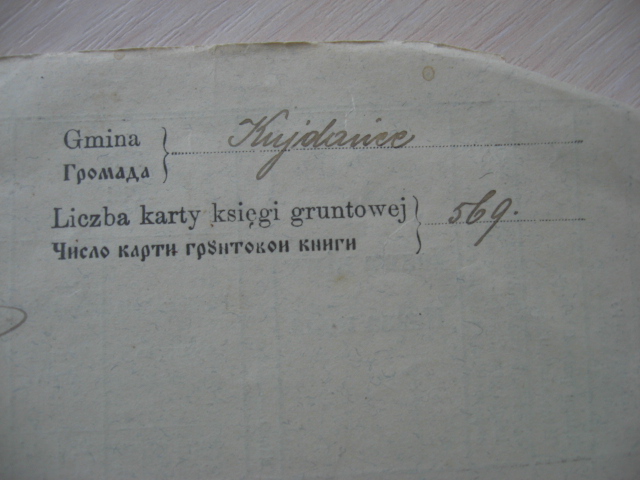 Gmina } Kujdańce
Громада
Liczba karty księgi gruntowej } 569.
Число карти ґрꙋнтовои книги